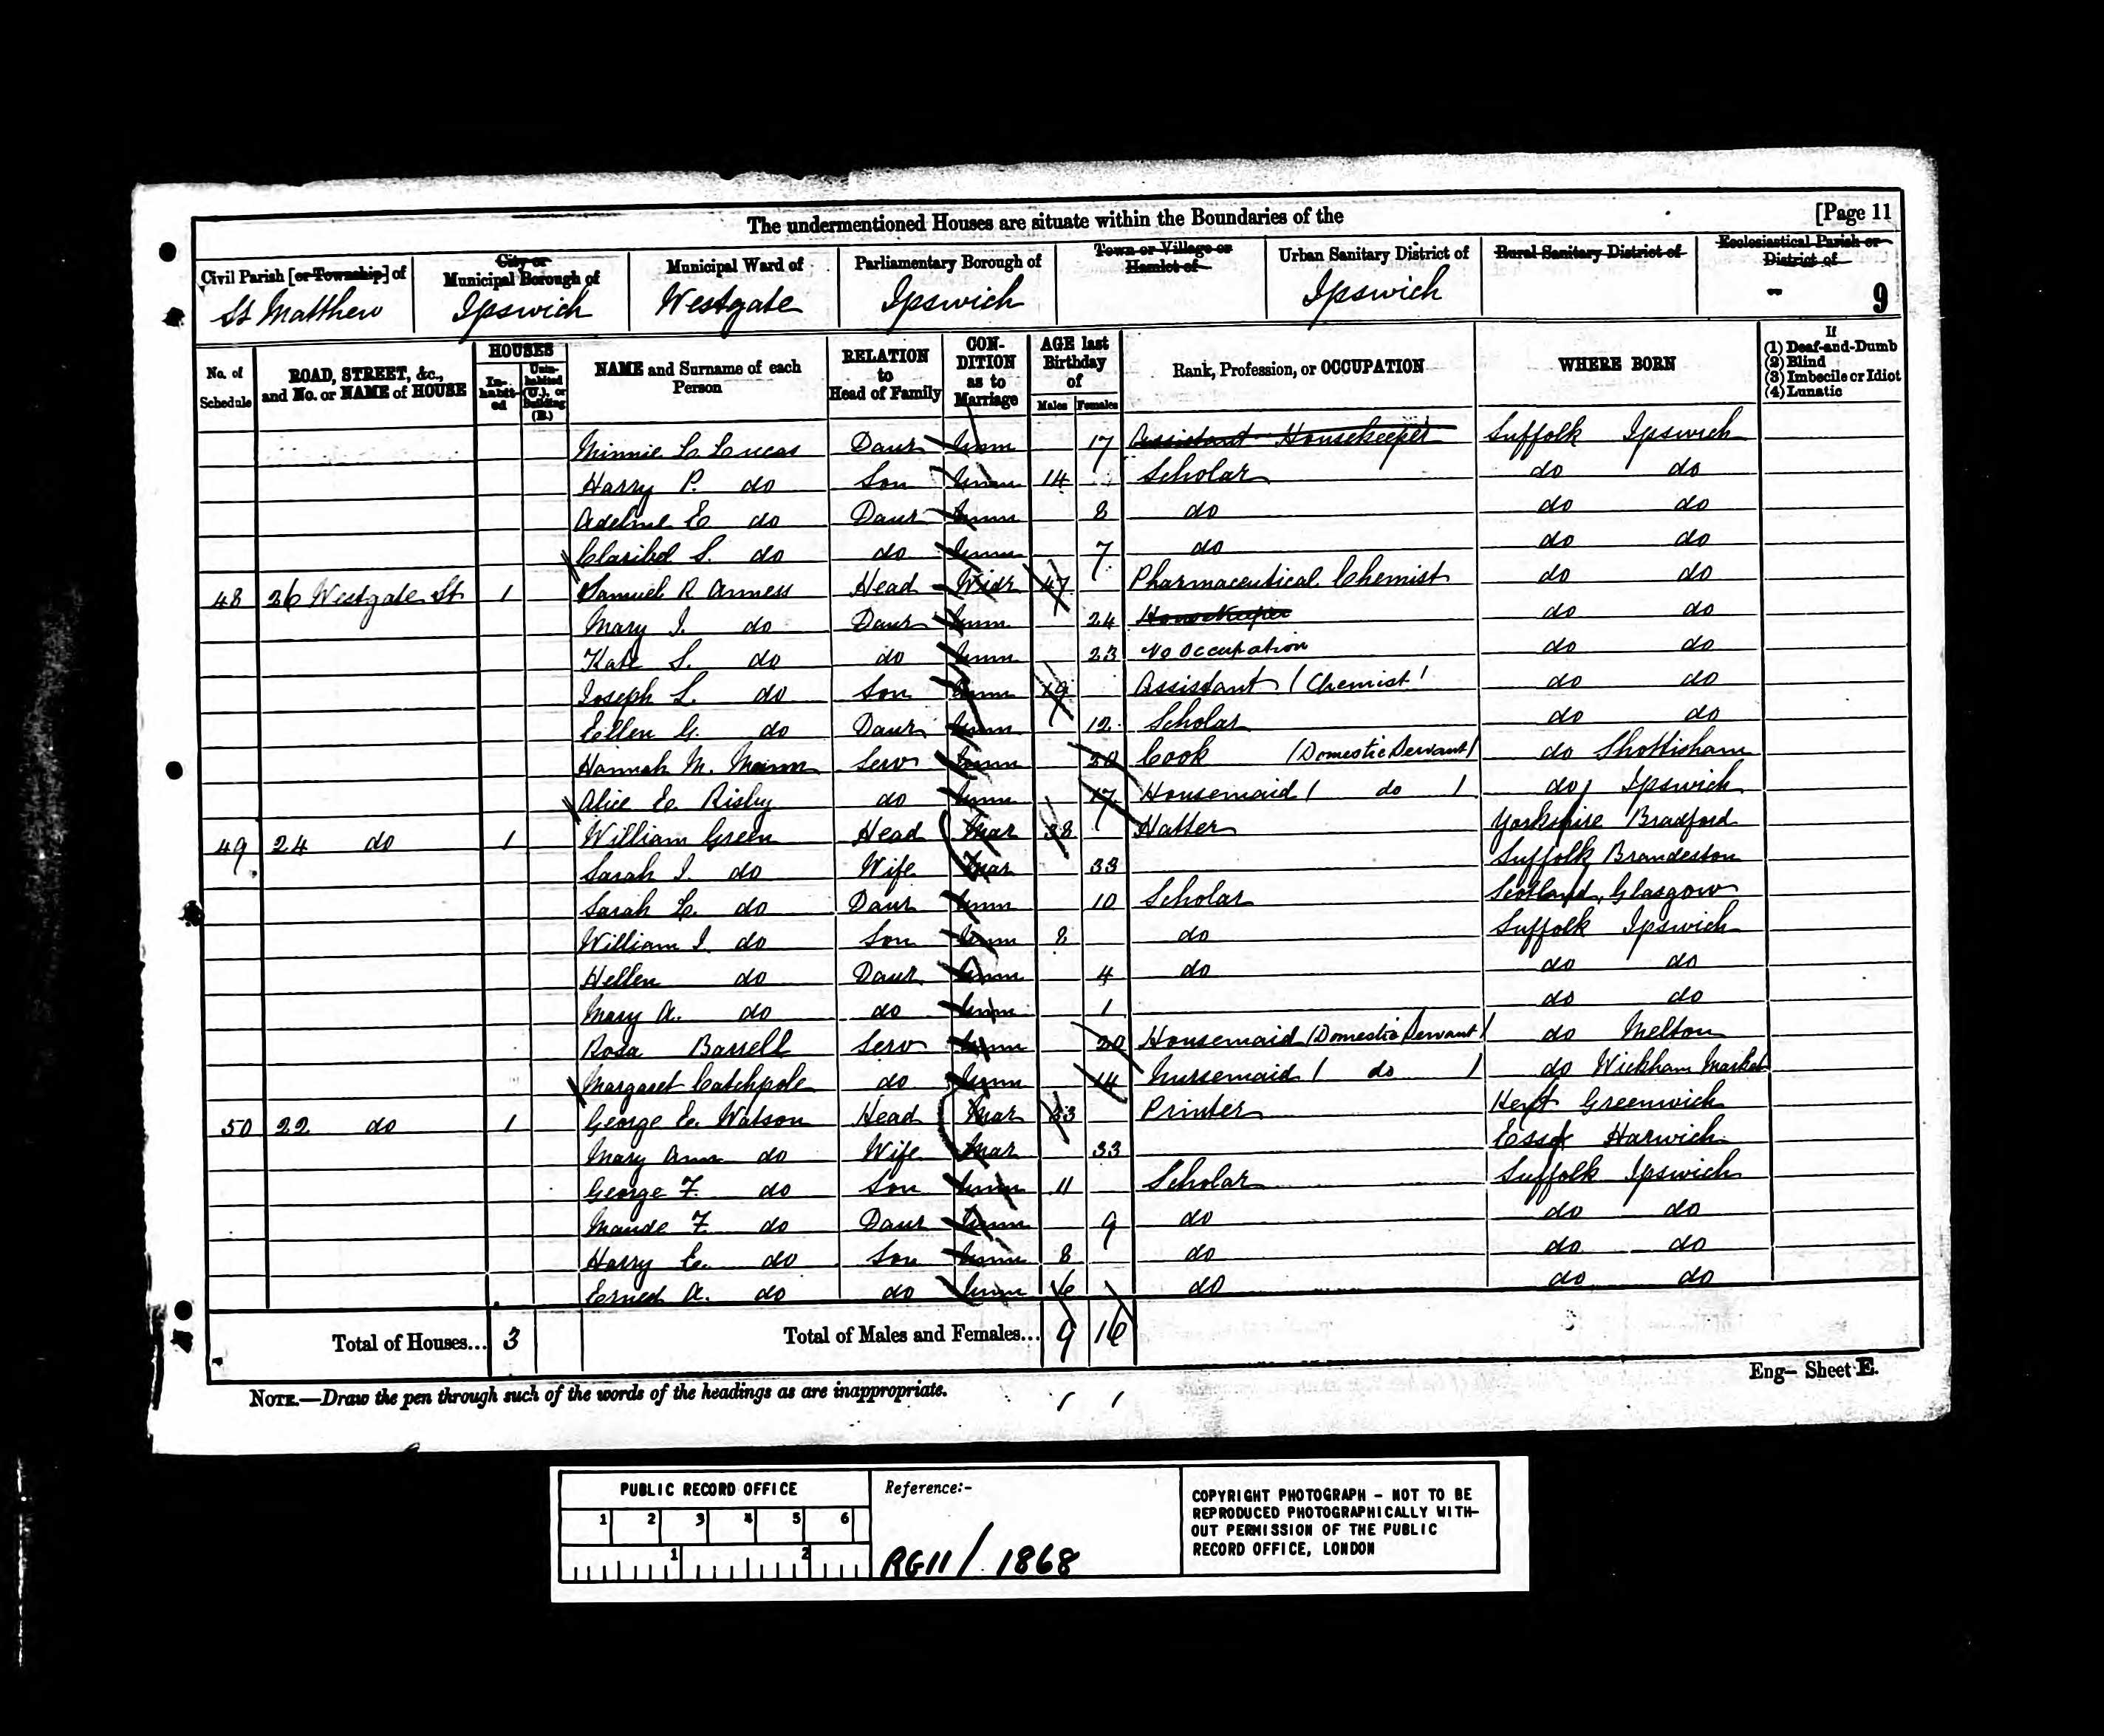 The undermentioned Houses are situate within the Boundaries of the [Page 11
Civil Parish [or Township] of City or Municipal Borough of Municipal Ward of Parliamentary Borough of Town or Village or Hamlet of Urban Sanitary District of Rural Sanitary District of Ecclesiastical Parish or District of
St Matthew Ipswich Westgate Ipswich Ipswich - 9
No. of Schedule ROAD, STREET, &c., and No. or NAME of HOUSE HOUSES In-habit-ed Unin-habited (U.), or Building (B.) NAME and Surname of each Person RELATION to Head of Family CON-DITION as to Marriage AGE last Birthday of Males Females Rank, Profession, or OCCUPATION WHERE BORN If (1) Deaf-and-Dumb (2) Blind (3) Imbecile or Idiot (4) Lunatic
Minnie L Lucas Daur Unm 17 Assistant Housekeeper Suffolk Ipswich
Harry P. do Son Unm 14 Scholar do do
Adeline E do Daur Unm 8 do do do
Claribel S. do do Unm 7 do do do
48 26 Westgate St 1 Samuel R Anness Head Widr 47 Pharmaceutical Chemist do do
Mary J. do Daur Unm 24 Housekeeper do do
Kate S. do do Unm 23 No Occupation do do
Joseph L. do Son Unm 19 Assistant (Chemist) do do
Ellen G. do Daur Unm 12 Scholar do do
Hannah M. Serv Unm 20 Cook (Domestic Servant) do Shottisham
Alice E Risby do Unm 17 Housemaid ( do ) do Ipswich
49 24 do 1 William Green Head Mar 38 Hatter Yorkshire Bradford
Sarah J. do Wife Mar 33 Suffolk Brandeston
Sarah L. do Daur Unm 10 Scholar Scotland, Glasgow
William J. do Son Unm 8 do Suffolk Ipswich
Hellen do Daur Unm 4 do do do
Mary A. do do Unm 1 do do
Rosa Barrell Serv Unm 20 Housemaid (Domestic Servant) do Melton
Margaret Catchpole do Unm 14 Nursemaid ( do ) do Wickham Market
50 22 do 1 George E. Watson Head Mar 33 Printer Kent Greenwich
Mary Ann do Wife Mar 33 Essex Harwich
George F. do Son Unm 11 Scholar Suffolk Ipswich
Maude F. do Daur Unm 9 do do do
Harry E. do Son Unm 8 do do do
Ernest A. do do Unm 6 do do do
Total of Houses... 3 Total of Males and Females... 9 16
Eng- Sheet E.
NOTE.—Draw the pen through such of the words of the headings as are inappropriate.
PUBLIC RECORD OFFICE
1 2 3 4 5 6
1 2
Reference:-
RG11/1868
COPYRIGHT PHOTOGRAPH - NOT TO BE
REPRODUCED PHOTOGRAPHICALLY WITH-
OUT PERMISSION OF THE PUBLIC
RECORD OFFICE, LONDON